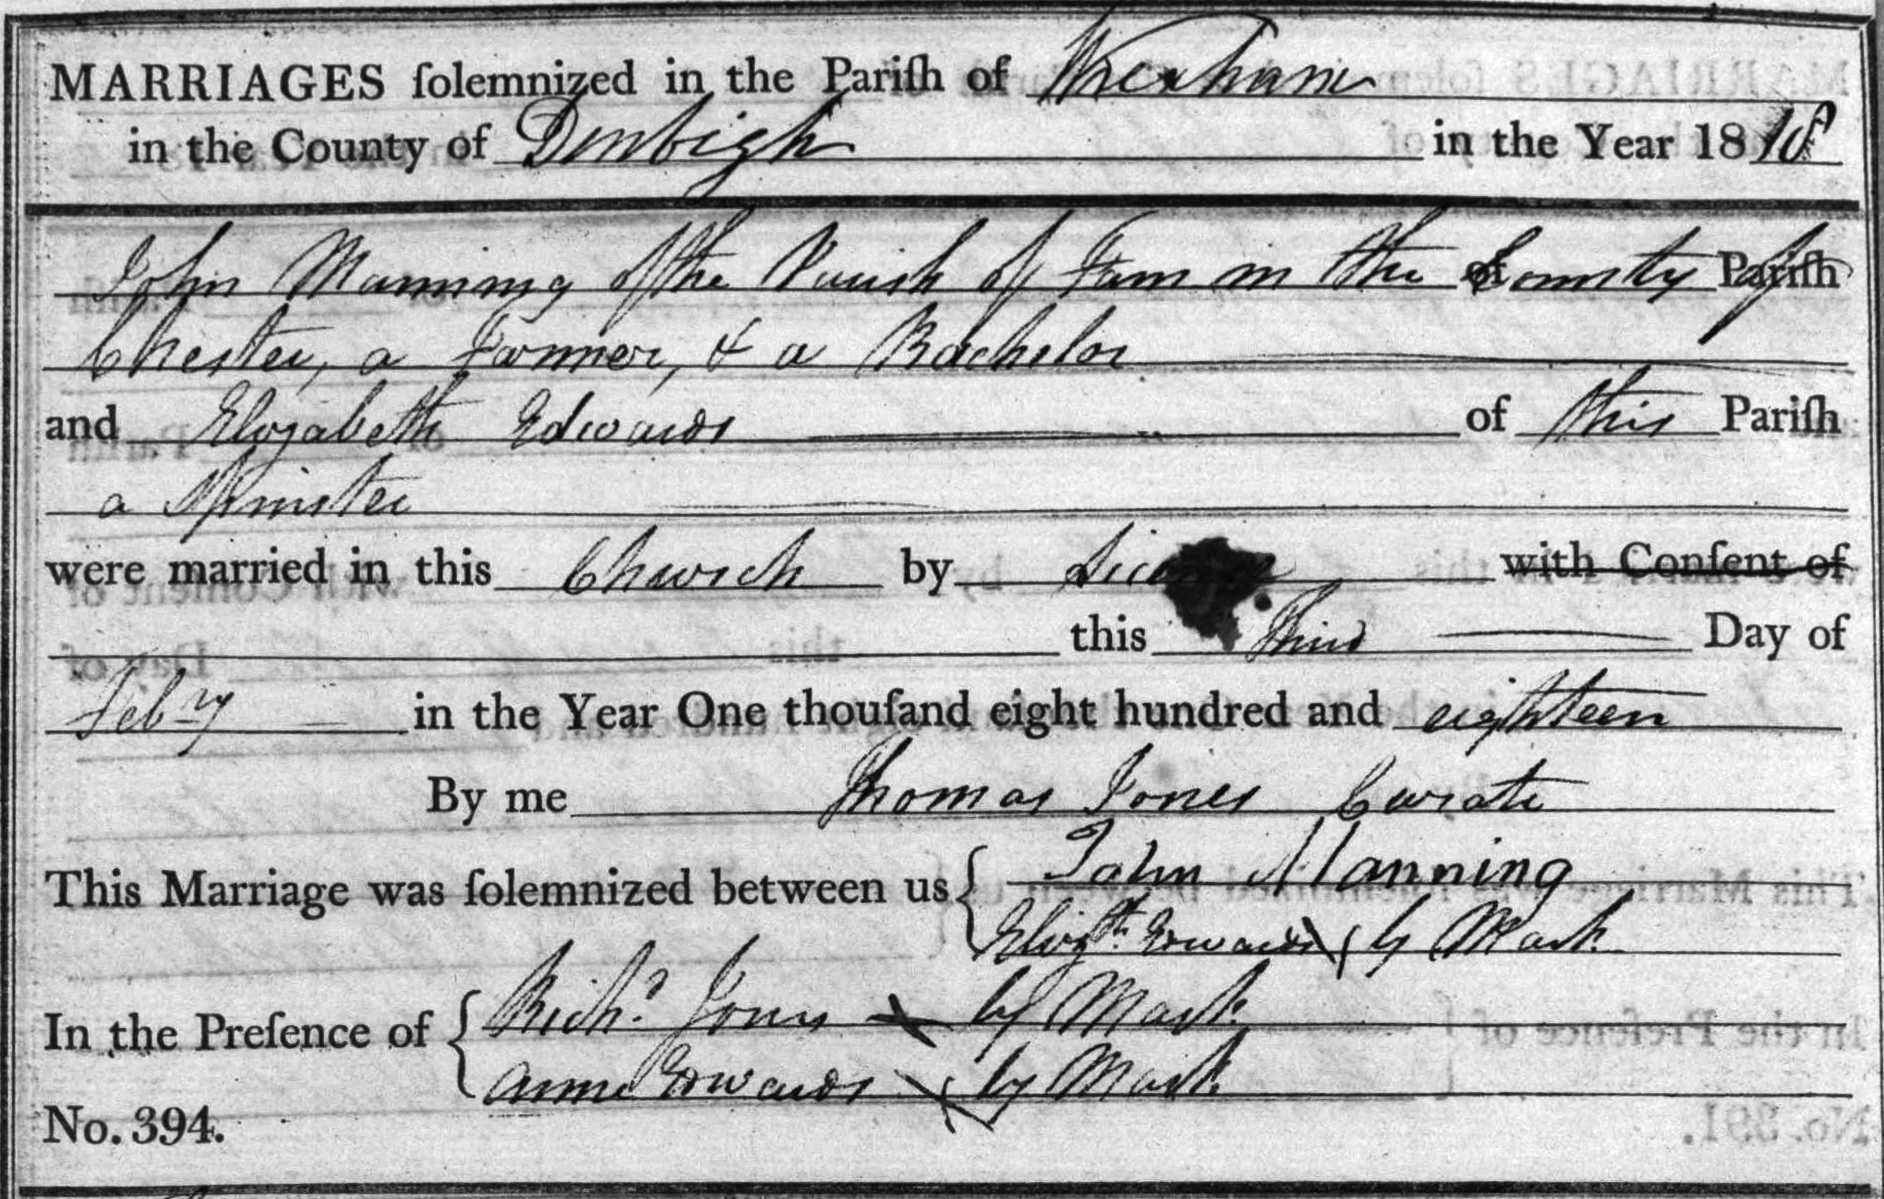 MARRIAGES ſolemnized in the Pariſh of Wrexham
in the County of Denbigh in the Year 1818
John Manning of the Parish of Farn in the County of Pariſh
Chester, a Farmer, & a Bachelor
and Elizabeth Edwards of this Pariſh
a Spinster
were married in this Church by Licence with Conſent of
this Third Day of
Febry in the Year One thouſand eight hundred and eighteen
By me Thomas Jones Curate
This Marriage was ſolemnized between us { John Manning
Elizth. Edwards X by Mark
In the Preſence of { Richd. Jones X by Mark
Anne Edwards X by Mark
No. 394.